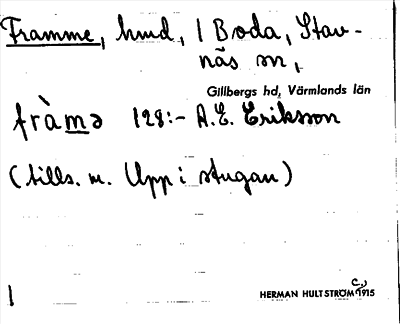 Framme, hmd, 1 Boda, Stav-
näs sn,
Gillbergs hd, Värmlands län
fràmə 128:- A.E. Eriksson
(tills. m. Upp i stugan)
1
HERMAN HULTSTRÖM C.) 1915